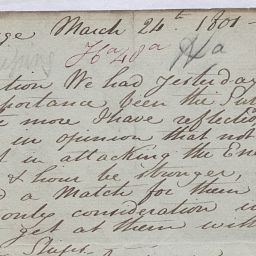 ge March 24th 1801 -
tion We had yesterday
portance been the Sub
e more I have reflectio
in opinion that not
t in attacking the Ene
& hour be stronger,
d a Match for them
only consideration in
get at them with